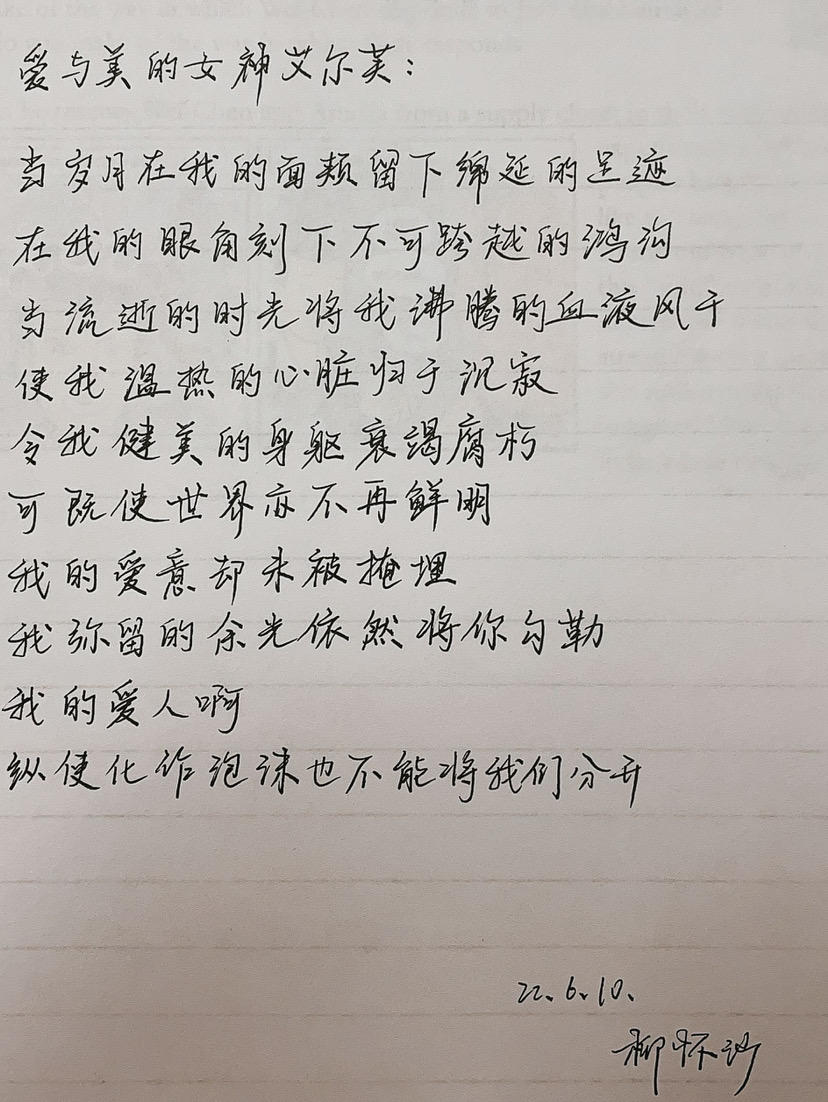 爱与美的女神艾尔芙：
当岁月在我的面颊留下绵延的足迹
在我的眼角刻下不可跨越的鸿沟
当流逝的时光将我沸腾的血液风干
使我温热的心脏归于沉寂
令我健美的身躯衰竭腐朽
可既使世界亦不再鲜明
我的爱意却未被掩埋
我弥留的余光依然将你勾勒
我的爱人啊
纵使化作泡沫也不能将我们分开
22.6.10.
柳怀沙